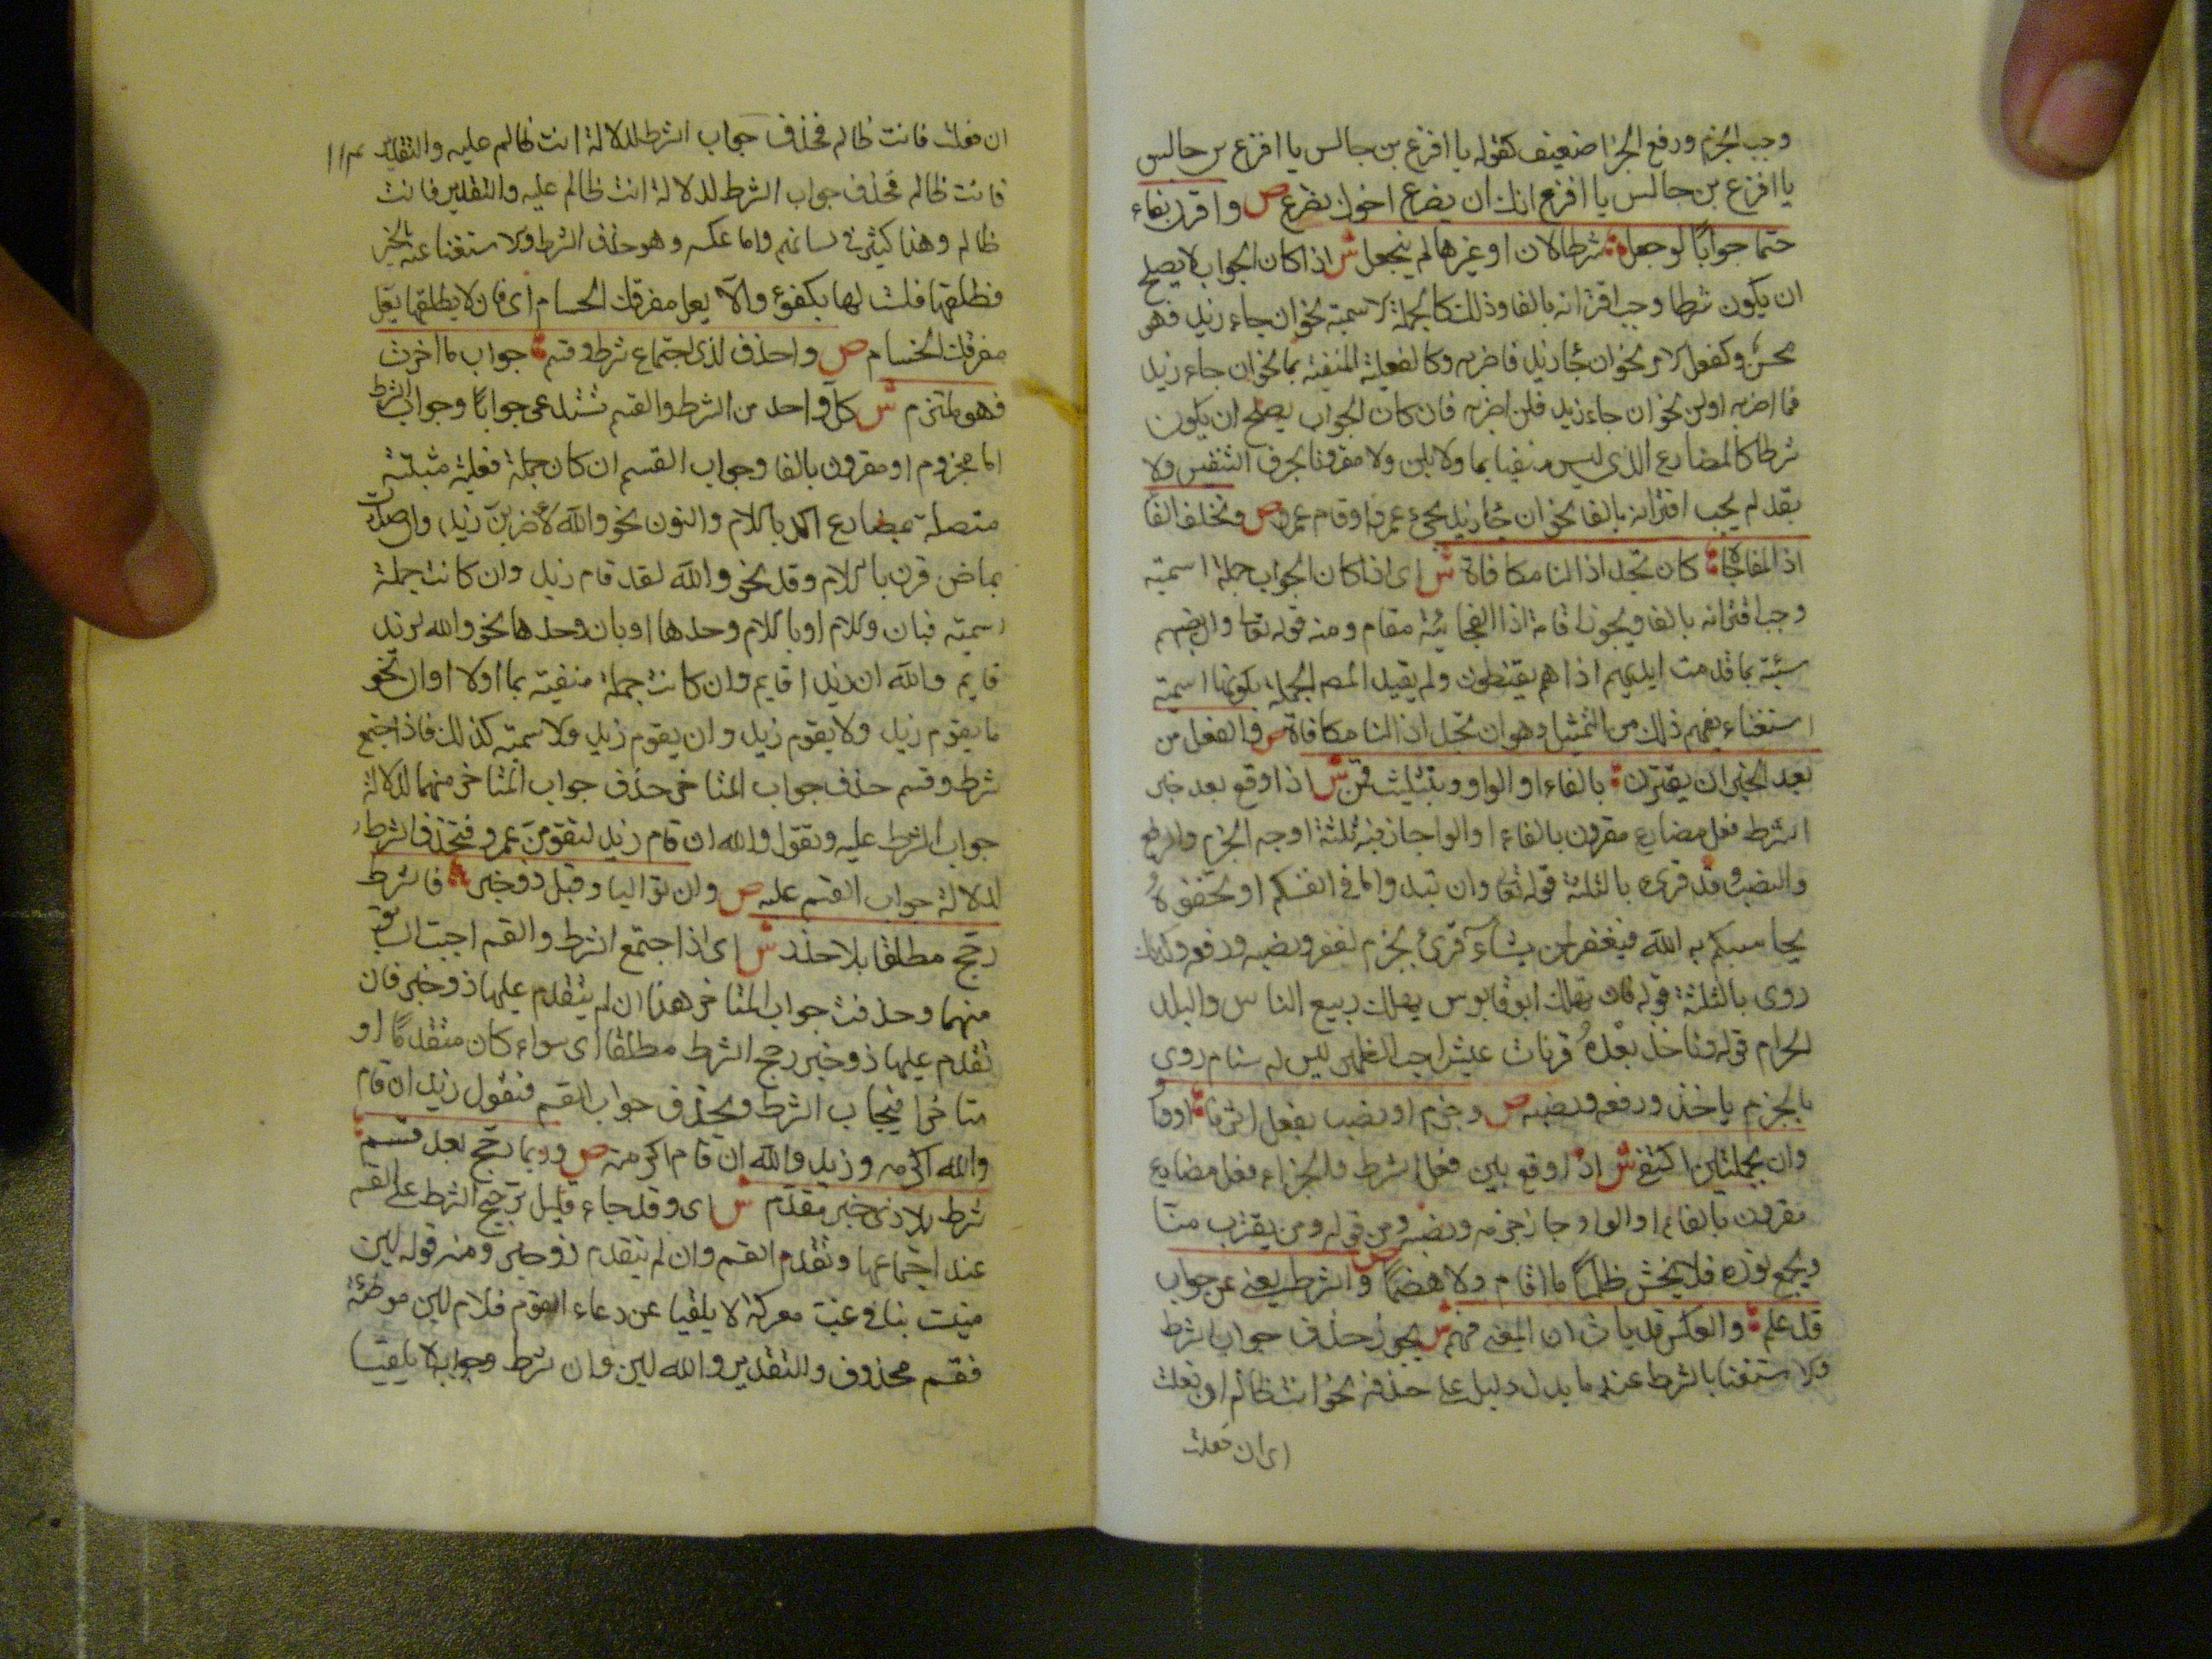 وجب الجزم ورفع الجزا ضعيف كقوله يا اقرع بن حابس يا اقرع بن حابس
يا اقرع بن حابس يا اقرع انك ان يصرع اخوك تصرع ص واقرن بفاء
حتما جوابا لو جعل شرطا لان او غيرها لم ينجعل ش اذا كان الجواب لا يصلح
ان يكون شرطا وجب اقترانه بالفا وذلك كالجملة الاسمية نحو ان جاء زيد فهو
محسن وكفعل الامر نحو ان جا زيد فاضربه وكالفعلية المنفية بما نحو ان جاء زيد
فما اضربه او لن نحو ان جاء زيد فلن اضربه فان كان الجواب يصلح ان يكون
شرطا كالمضارع الذي ليس منفيا بما ولا بلن ولا مقرونا بحرف التنفيس ولا
بقد لم يجب اقترانه بالفا نحو ان جا زيد يجيء عمرو او قام عمرو ص وتخلف الفا
اذا المفاجاة كان تجد اذا لنا مكافاة ش اى اذا كان الجواب جملة اسمية
وجب اقترانه بالفا ويجوز اقامة اذا الفجائية مقام ومنه قوله تعا وان تصبهم
سيئة بما قدمت ايديهم اذا هم يقنطون ولم يقيد المص الجملة بكونها اسمية
استغناء بفهم ذلك من التمثيل وهو ان تجد اذا لنا مكافاة ص والفعل من
بعد الجزا ان يقترن بالفاء او الواو بتثليث قمن ش اذا وقع بعد جزا
الشرط فعل مضارع مقرون بالفاء او الواو جاز فيه ثلثة اوجه الجزم والرفع
والنصب وقد قرئ بالثلثة قوله تعا وان تبدوا ما في انفسكم او تخفوه
يحاسبكم به الله فيغفر لمن يشاء قرئ بجزم يغفر ونصبه ورفعه وكذلك
روى بالثلثة قوله فان يهلك ابو قابوس يهلك ربيع الناس والبلد
الحرام قوله وناخذ بعده بذناب عيش اجب الظهر ليس له سنام روى
بالجزم ياخذ ورفعه ونصبه ص وجزم او نصب بفعل اثر فا او واو
ان بجملتين اكتنفا ش اذا وقع بين فعل الشرط والجزاء فعل مضارع
مقرون بالفاء او الواو جاز جزمه ونصبه ومن قوله ومن يقترب منا
ويخضع نؤوه فلا يخش ظلما ما اقام ولا هضما ص والشرط يغني عن جواب
قد علم والعكس قد يات ان المعنى فهم ش يجوز حذف جواب الشرط
والاستغنا بالشرط عند ما يدل دليل على حذفه نحو انت ظالم ان فعلت
اى ان فعلت
ان فعلت فانت ظالم فحذف جواب الشرط لدلالة انت ظالم عليه والتقدير
فانت ظالم فحذف جواب الشرط لدلالة انت ظالم عليه والتقدير فانت
ظالم وهذا كثير في لسانهم واما عكسه وهو حذف الشرط والاستغنا عنه بالجزا
فطلقها فلست لها بكفوء والا يعل مفرقك الحسام اى فان لا يطلقها يعل
مفرقك الحسام ص واحذف لدى اجتماع شرط وقسم جواب ما اخرت
فهو ملتزم ش كل واحد من الشرط والقسم تستدعى جوابا وجواب الشرط
اما مجزوم او مقرون بالفا وجواب القسم ان كان جملة فعلية مثبتة
متصلة بمضارع اكد باللام والنون نحو والله لاضربن زيدا وان صدرت
بماض قرن باللام وقد نحو والله لقد قام زيد وان كانت جملة
اسمية فبان واللام او باللام وحدها او بان وحدها نحو والله لزيد
قايم والله ان زيدا قايم وان كانت جملة منفية بما او لا او ان نحو
ما يقوم زيد ولا يقوم زيد وان يقوم زيد والاسمية كذلك فاذا اجتمع
شرط وقسم حذف جواب المتاخر حذف جواب المتاخر منهما لدلالة
جواب الشرط عليه وتقول والله ان قام زيد ليقومن عمرو فتحذف الشرط
لدلالة جواب القسم عليه ص وان تواليا وقبل ذو خبر فالشرط
رجح مطلقا بلا حذر ش اى اذا اجتمع الشرط والقسم اجبت السابق
منهما وحذفت جواب المتاخر هذا ان لم يتقدم عليهما ذو خبر فان
تقدم عليهما ذو خبر رجح الشرط مطلقا اى سواء كان متقدما او
متاخرا فيجاب الشرط ويحذف جواب القسم فنقول زيد ان قام
والله اكرمه وزيد والله ان قام اكرمته ص وربما رجح بعد قسم
شرط بلا ذى خبر مقدم ش اى وقد جاء قليلا ترجيح الشرط على القسم
عند اجتماعهما وتقدم القسم وان لم يتقدم ذو خبر ومنه قوله لئن
منيت بنا في غب معركة لا يلفيا عن دعاء القوم فلام لئن موطئة
فقسم محذوف والتقدير والله لئن وان شرط وجوابه لا يلفيا